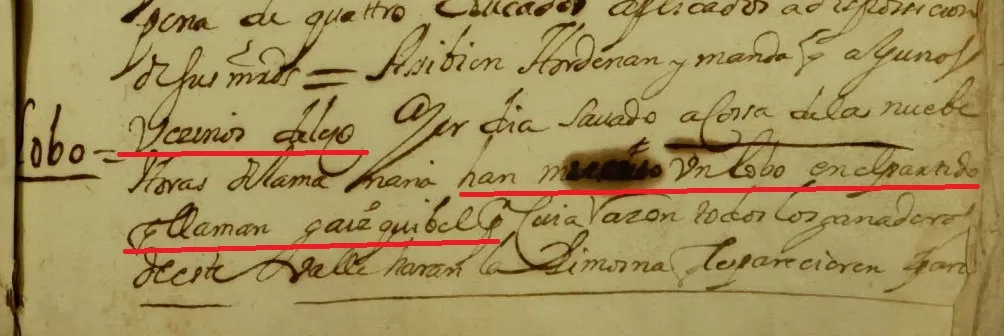 pena de quattro Ducados aplicados a disposicion
de sus mrds = Assibien Hordenan y mandã q̃ algunos
Vecinos deleyo Ayer dia Savado a Cossa de la nuebe
Lobo = Horas dela ma nana han un lobo en el partido
q̃ llaman q̃ Cuia Razon todos los ganaderos
de este Valle haran la Limosna q̃ le parecieren para